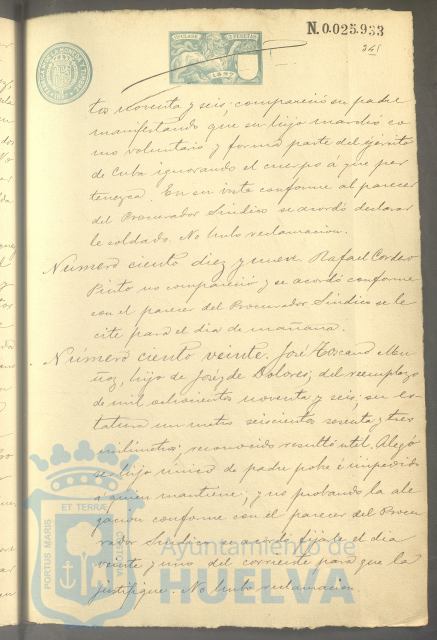 N.0.025.933
241
1897
tos noventa y seis, compareció su padre
manifestando que su hijo marchó co
mo voluntario y forma parte del ejército
de Cuba ignorando el cuerpo á que per
tenezca. En su vista conforme al parecer
del Procurador Síndico se acordó declarar
le soldado. No hubo reclamación.
Numero ciento diez y nueve Rafael Cordero
Pinto no compareció y se acordó conforme
con el parecer del Procurador Síndico se le
cite para el dia de mañana.
Numero ciento veinte. José Toscano Mu
ñoz, hijo de José y de Dolores, del reemplazo
de mil ochocientos noventa y seis, su es
tatura un metro seiscientos sesenta y tres
milimetros; reconocido resultó util. Alegó
ser hijo único de padre pobre é impedido
a quien mantiene; y no probando la ale
gación conforme con el parecer del Procu
rador Síndico se acordó fijarle el dia
veinte y uno del corriente para que la
justifique. No hubo reclamación.
PORTUS MARIS
ET TERRÆ
CUSTODIA
Ayuntamiento de
HUELVA